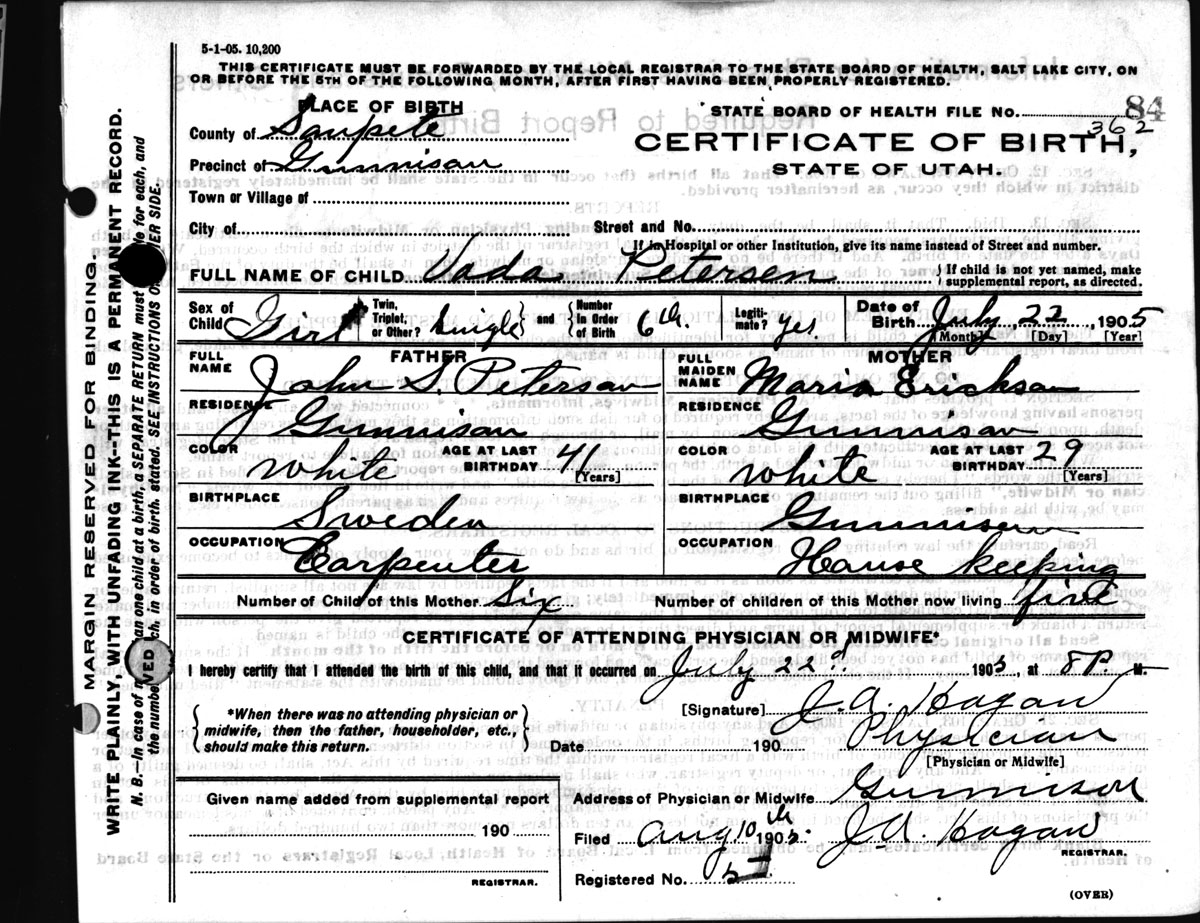 5-1-05. 10,200
THIS CERTIFICATE MUST BE FORWARDED BY THE LOCAL REGISTRAR TO THE STATE BOARD OF HEALTH, SALT LAKE CITY, ON
OR BEFORE THE 5TH OF THE FOLLOWING MONTH, AFTER FIRST HAVING BEEN PROPERLY REGISTERED.
PLACE OF BIRTH
County of Sanpete
Precinct of Gunnison
Town or Village of
City of
STATE BOARD OF HEALTH FILE NO. 84
362
CERTIFICATE OF BIRTH,
STATE OF UTAH.
Street and No.
If in Hospital or other Institution, give its name instead of Street and number.
FULL NAME OF CHILD Vada Petersen
If child is not yet named, make
supplemental report, as directed.
Sex of Child Girl
Twin, Triplet, or Other? Single and Number in Order of Birth 6th
Legitimate? yes
Date of Birth July 22, 1905
[Month] [Day] [Year]
FATHER
FULL NAME John S. Peterson
RESIDENCE Gunnison
COLOR White
AGE AT LAST BIRTHDAY 41
[Years]
BIRTHPLACE Sweden
OCCUPATION Carpenter
MOTHER
FULL MAIDEN NAME Maria Erickson
RESIDENCE Gunnison
COLOR White
AGE AT LAST BIRTHDAY 29
[Years]
BIRTHPLACE Gunnison
OCCUPATION House keeping
Number of Child of this Mother Six
Number of children of this Mother now living five
CERTIFICATE OF ATTENDING PHYSICIAN OR MIDWIFE*
I hereby certify that I attended the birth of this child, and that it occurred on July 22d 1905, at 8 P. M.
*When there was no attending physician or
midwife, then the father, householder, etc.,
should make this return.
[Signature] J. A. Hagan
Date 190
Physician
[Physician or Midwife]
Given name added from supplemental report
190
REGISTRAR.
Address of Physician or Midwife Gunnison
Filed Aug 10th 1905 J. A. Hagan
REGISTRAR.
Registered No. 5
(OVER)
MARGIN RESERVED FOR BINDING.
WRITE PLAINLY, WITH UNFADING INK--THIS IS A PERMANENT RECORD.
N. B.--In case of more than one child at a birth, a SEPARATE RETURN must be made for each, and
the number of each, in order of birth, stated. SEE INSTRUCTIONS OTHER SIDE.